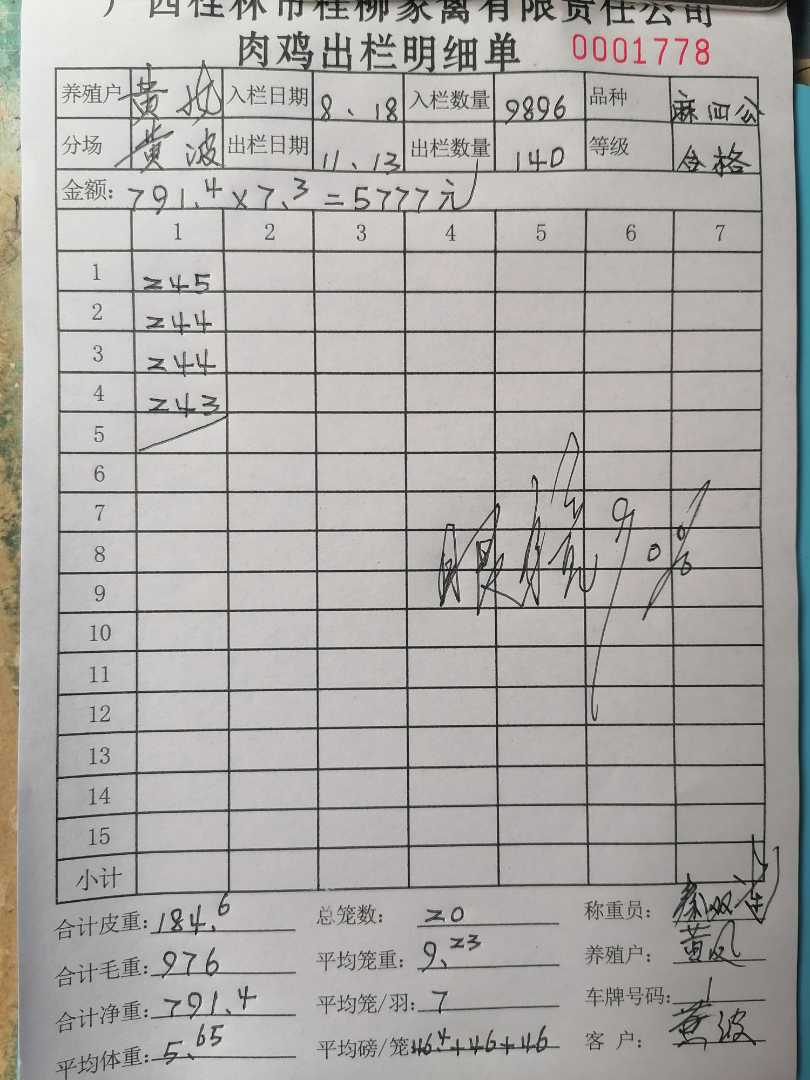 广西桂林市桂柳家禽有限责任公司
肉鸡出栏明细单 0001778
养殖户 黄 入栏日期 8.18 入栏数量 9896 品种 麻四公
分场 黄波 出栏日期 11.13 出栏数量 140 等级 合格
金额: 791.4×7.3=5777元
1 2 3 4 5 6 7
1 245
2 244
3 244
4 243
5
6
7
90%
8
9
10
11
12
13
14
15
小计
合计皮重: 184.6 总笼数: 20 称重员: 秦双
合计毛重: 976 平均笼重: 9.23 养殖户: 黄凤
合计净重: 791.4 平均笼/羽: 7 车牌号码: 1
平均体重: 5.65 平均磅/笼 46.4+46+46 客 户: 黄波